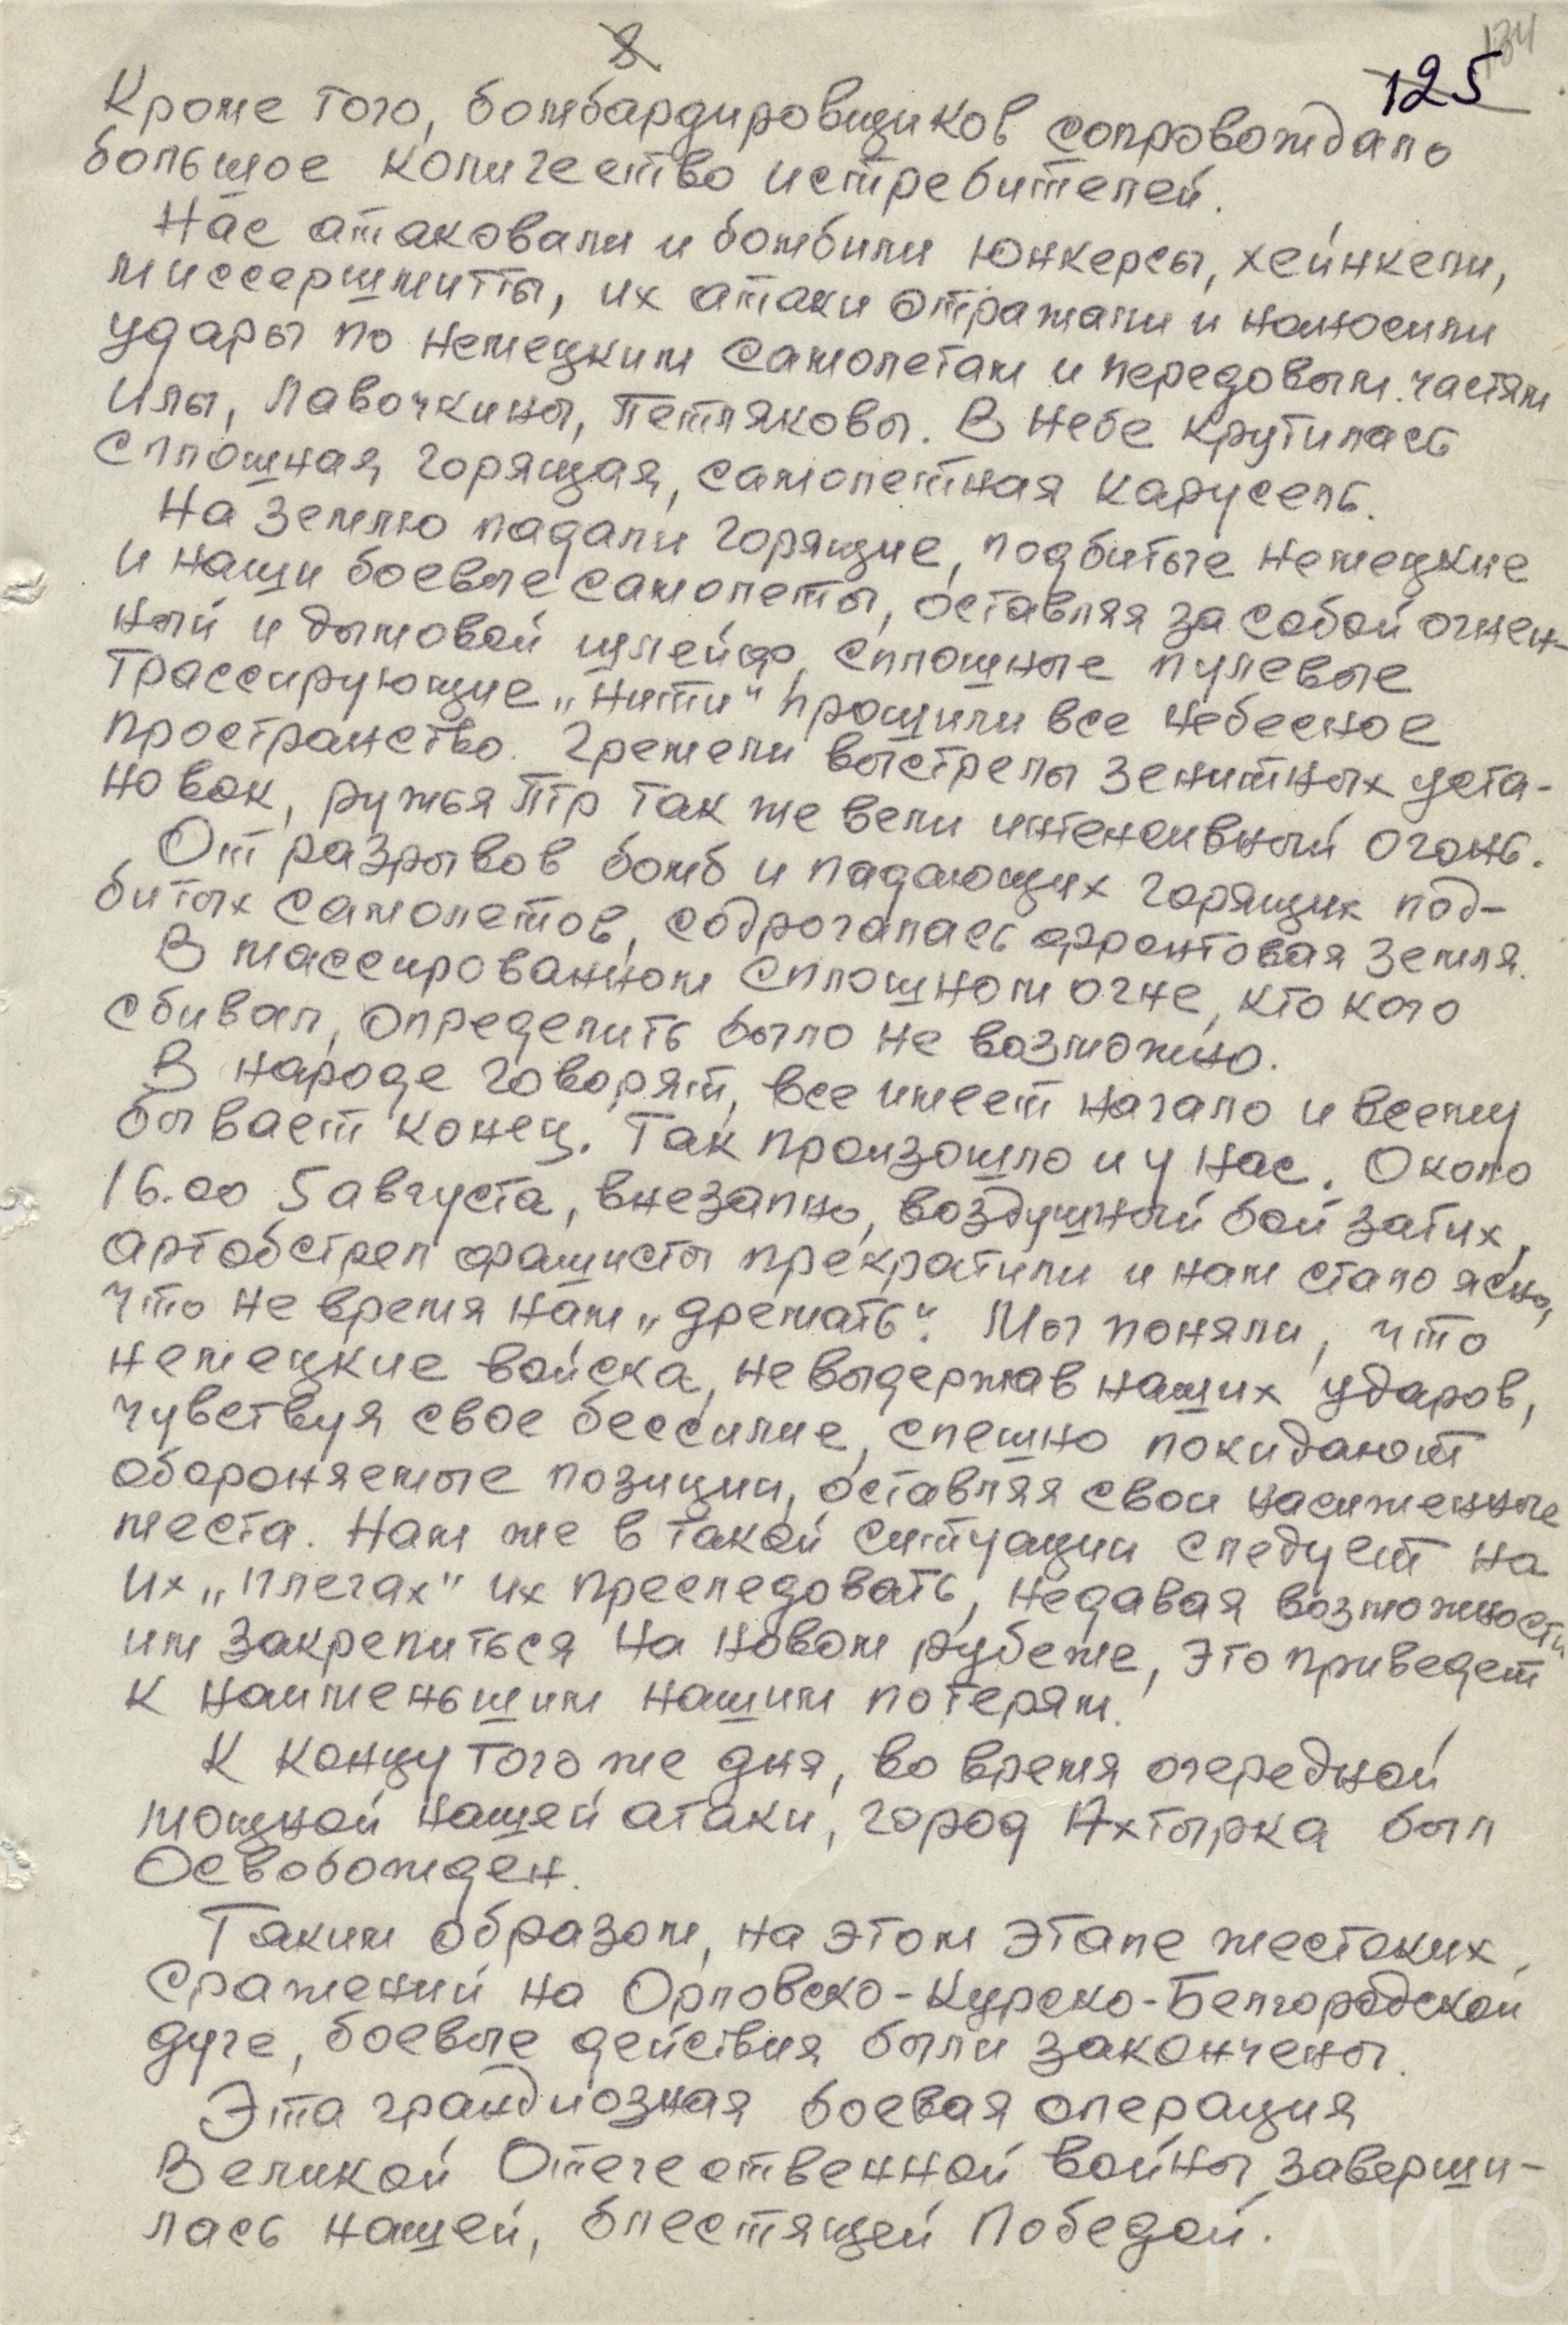 8
134
125
Кроме того, бомбардировщиков сопровождало
большое количество истребителей.
Нас атаковали и бомбили юнкерсы, хейнкели,
миссершмитты, их атаки отражали и наносили
удары по немецким самолетам и передовым частям
Илы, Лавочкины, Петляковы. В небе крутилась
сплошная, горящая, самолетная карусель.
На землю падали горящие, подбитые немецкие
и наши боевые самолеты, оставляя за собой огнен-
ный и дымовой шлейф, сплошные пулевые
трассирующие „нити" прошили все небесное
пространство. Гремели выстрелы зенитных уста-
новок, ружья ПТР так же вели интенсивный огонь.
От разрывов бомб и падающих горящих под-
битых самолетов, содрогалась фронтовая земля.
В массированном сплошном огне, кто кого
сбивал, определить было не возможно.
В народе говорят, все имеет начало и всему
бывает конец. Так произошло и у нас. Около
16.00 5 августа, внезапно, воздушный бой затих,
артобстрел фашисты прекратили и нам стало ясно,
что не время нам „дремать". Мы поняли, что
немецкие войска, не выдержав наших ударов,
чувствуя свое бессилие, спешно покидают
обороняемые позиции, оставляя свои насиженные
места. Нам же в такой ситуации следует на
их „плечах" их преследовать, недавая возможности
им закрепиться на новом рубеже, это приведет
к наименьшим нашим потерям.
К концу того же дня, во время очередной
мощной нашей атаки, город Ахтырка был
освобожден.
Таким образом, на этом этапе жестоких,
сражений на Орловско-Курско-Белгородской
дуге, боевые действия были закончены.
Эта грандиозная боевая операция
Великой Отечественной войны, заверши-
лась нашей, блестящей Победой.
ГАИО